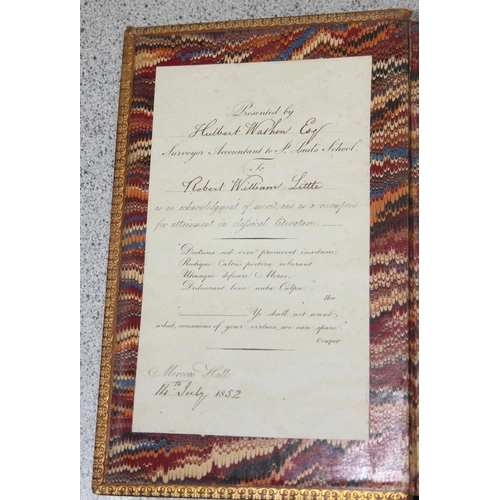 Presented by
Hulbert Wathen Esq
Surveyor Accountant to St. Paul's School.
To
Robert William Little
as an acknowledgment of merit, and as a recompense
for attainment in classical literature.
"Doctrina sed vim promovet insitam,
Rectique Cultus pectora roborant
Utcunque defecere Mores,
Dedecorant bene nata Culpæ"
Hor
Ye shall not want
what, conscious of your virtues, we can spare"
Cowper
Mercers Hall
14th July 1852